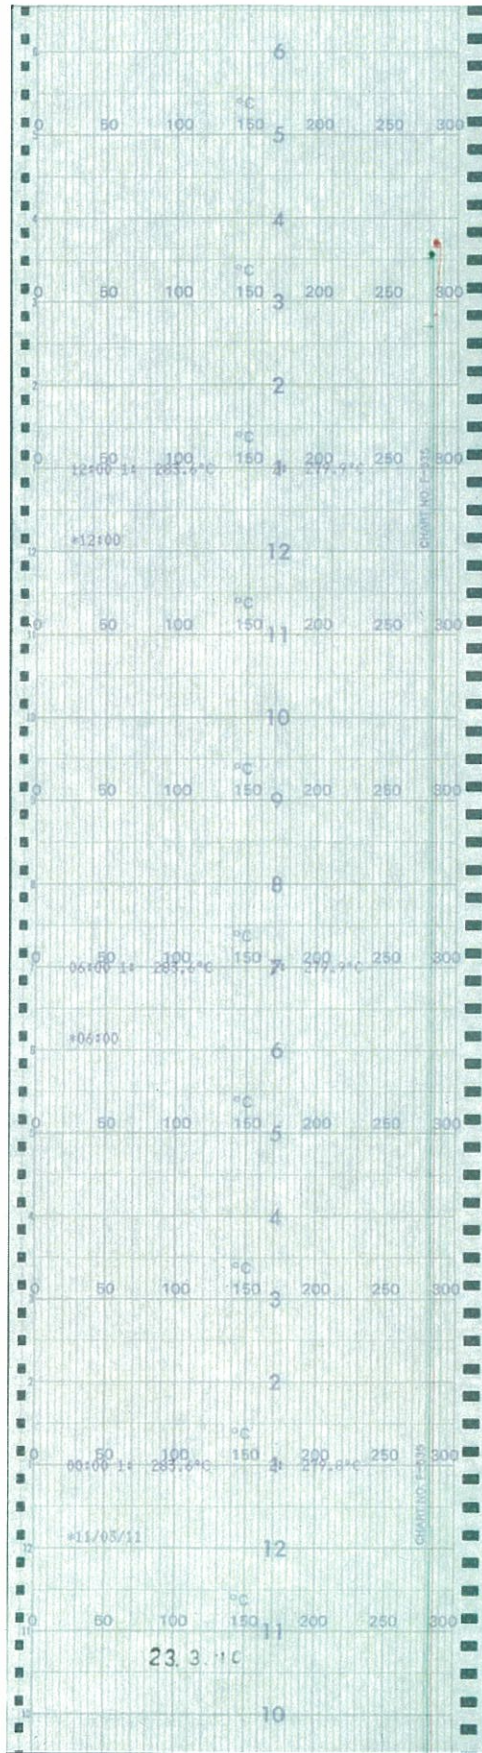 6
°C
0 50 100 150 200 250 300
5
4
°C
0 50 100 150 200 250 300
3
2
°C
0 50 100 150 200 250 300
12:00 1: 283.6°C 2: 279.9°C
1
CHART NO. E-535
*12:00
12
°C
0 50 100 150 200 250 300
11
10
°C
0 50 100 150 200 250 300
9
8
°C
0 50 100 150 200 250 300
06:00 1: 283.6°C 2: 279.9°C
7
*06:00
6
°C
0 50 100 150 200 250 300
5
4
°C
0 50 100 150 200 250 300
3
2
°C
0 50 100 150 200 250 300
00:00 1: 283.6°C 2: 279.8°C
1
*11/03/11
12
°C
0 50 100 150 200 250 300
11
23. 3.
10